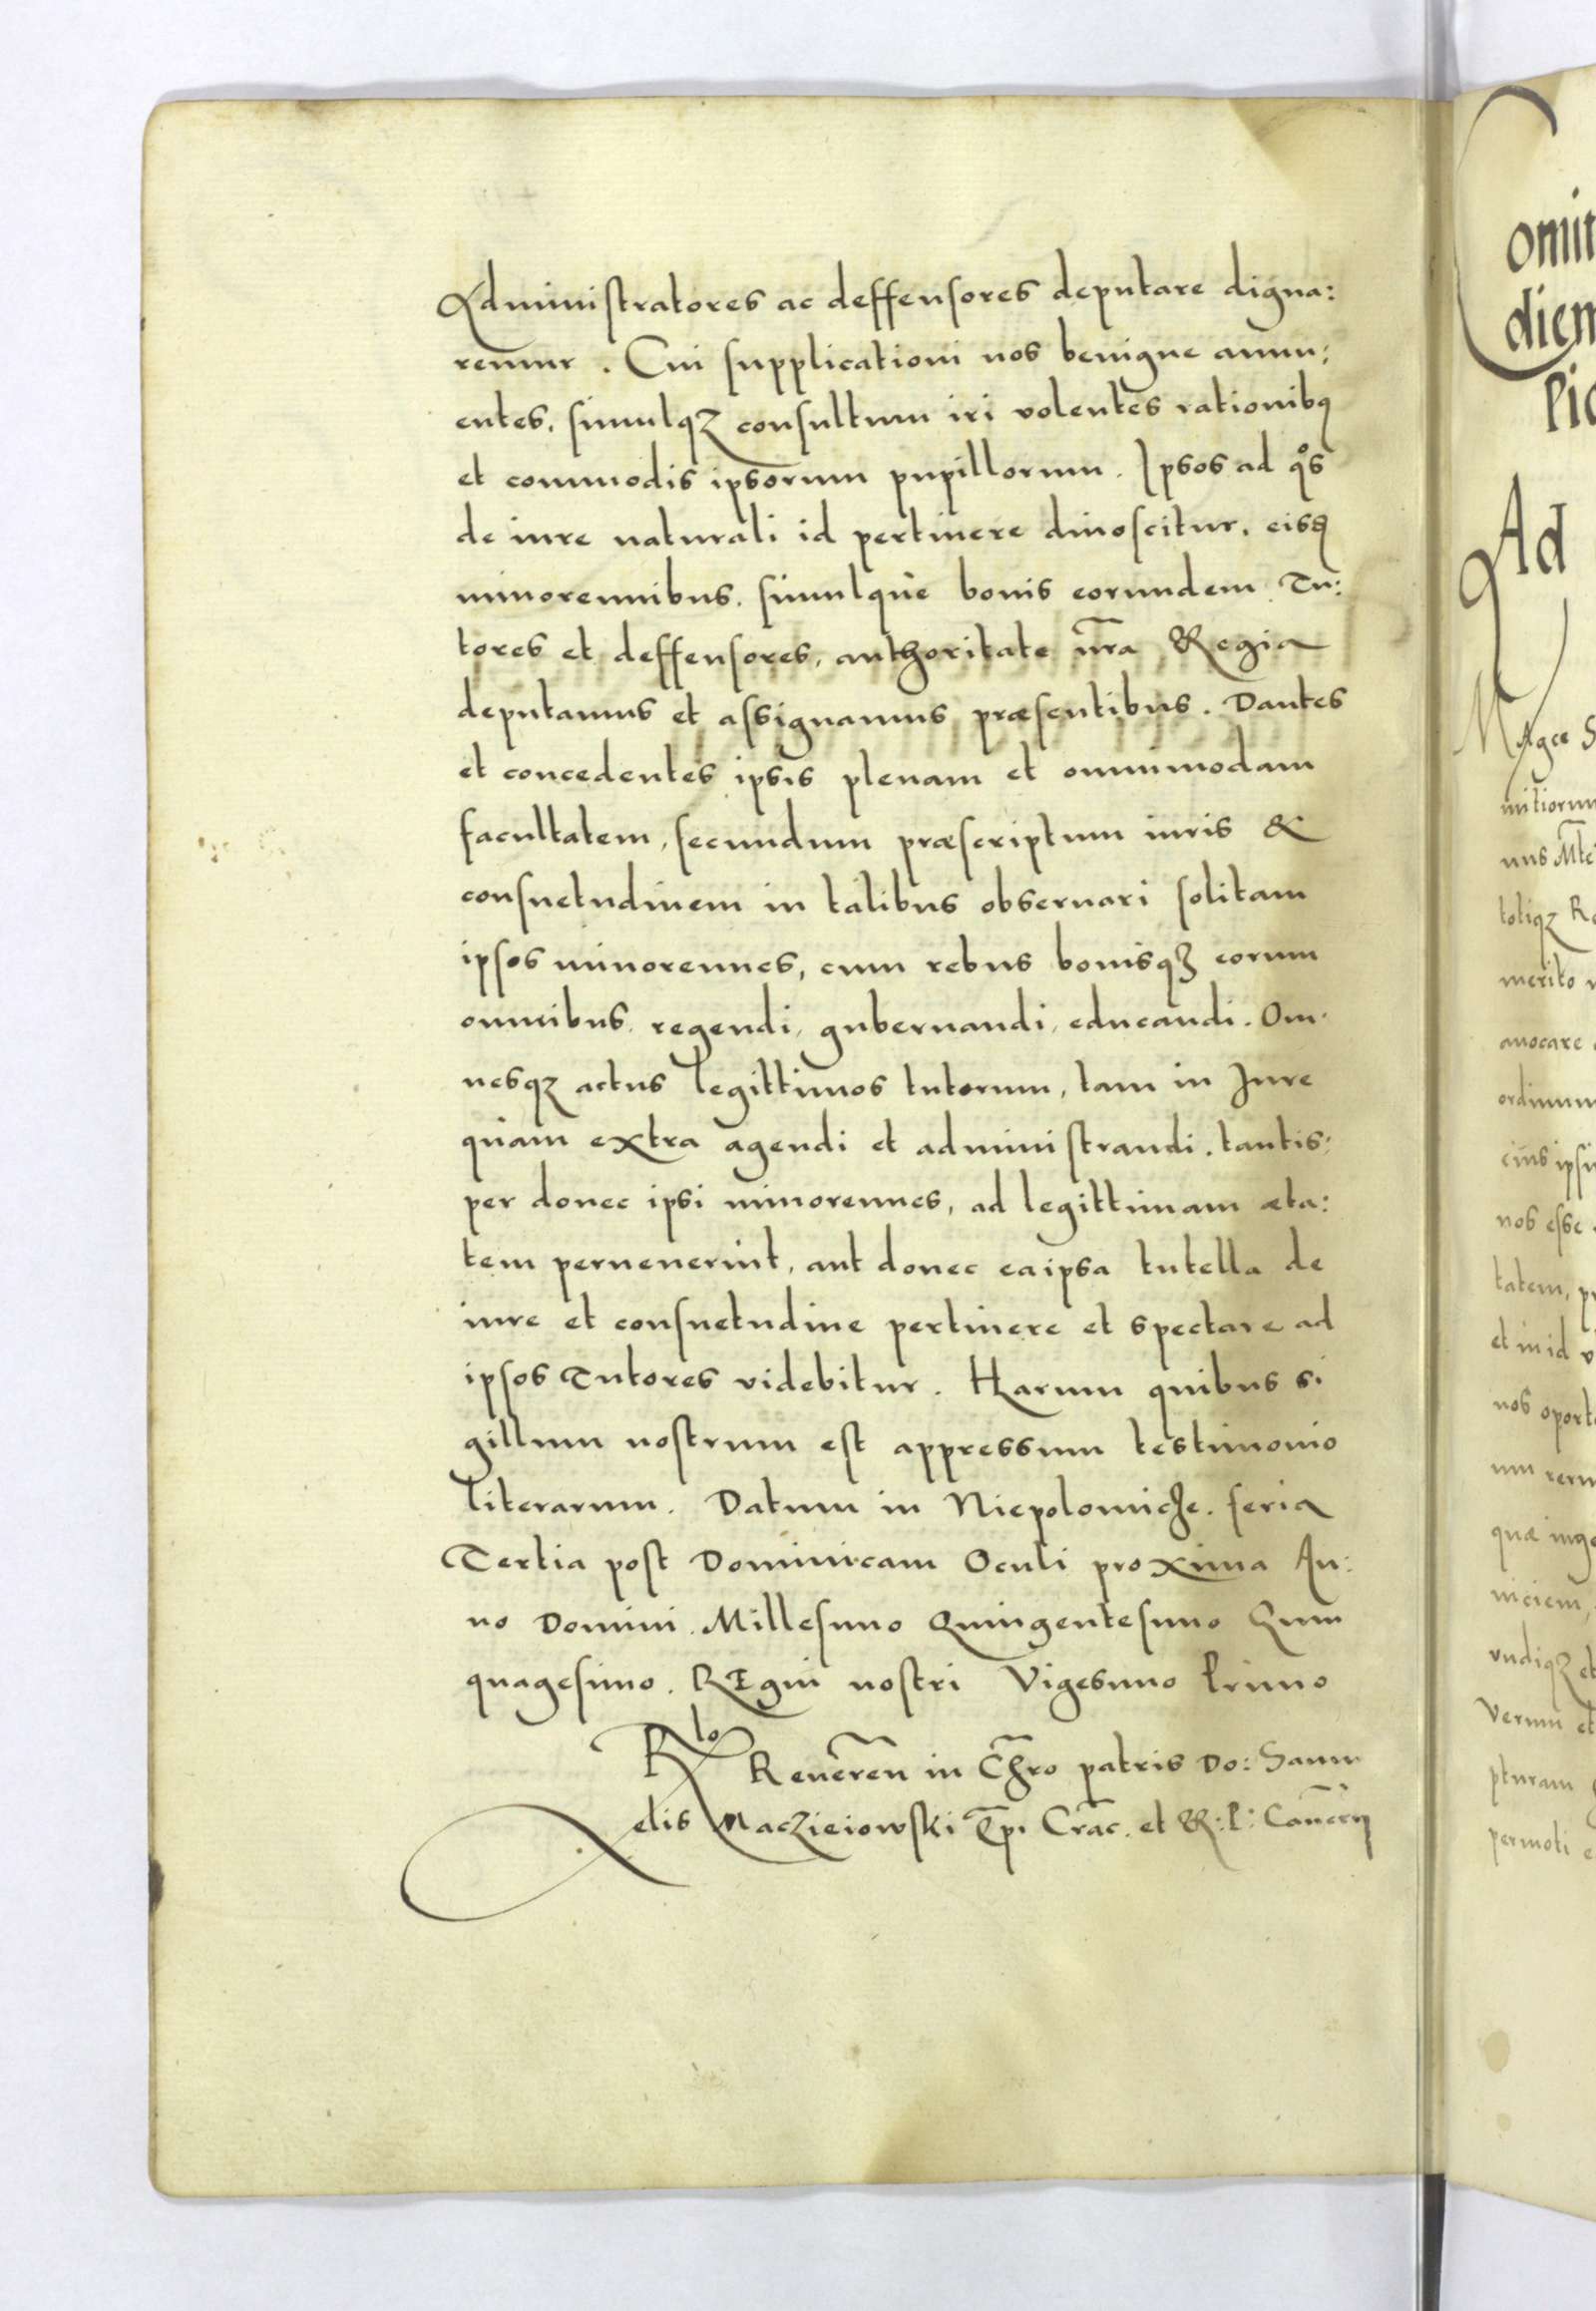 Administratores ac deffensores deputare digna:
remur. Cui supplicationi nos benigne annu:
entes, simulqꝫ consultum iri volentes rationibꝫ
et commodis ipsorum pupillorum. Ipsos ad qͦs
de iure naturali id pertinere dinoscitur, eisdꝫ
minorennibus, simulquè bonis eorundem Tu:
tores et deffensores, authoritate nr̄a Regia
deputamus et assignamus præsentibus. Dantes
et concedentes ipsis plenam et omnimodam
facultatem, secundum præscriptum iuris &
consuetudinem in talibus obseruari solitam
ipsos minorennes, cum rebus bonisqꝫ eorum
omnibus regendi, gubernandi, educandi. Om:
nesqꝫ actus legittimos tutorum, tam in Jure
quàm extra agendi et administrandi. tantis:
per donec ipsi minorennes, ad legittimam æta:
tem peruenerint, aut donec ea ipsa tutella de
iure et consuetudine pertinere et spectare ad
ipsos Tutores videbitur. Harum quibus si
gillum nostrum est appressum testimonio
literarum. Datum in Niepolomicze. feria
Tertia post Dominicam Oculi proxima An:
no Domini Millesimo Quingentesimo Quin
quagesimo. REgni nostri Vigesimo Primo
Rlo Reueren̄ in Chr̄o patris Do: Samu
elis Maczieiowski Ep̄i Crac̄. et R: P: Cancrij
omit
diem
Ad
Magce S
mitiorum
nus Mte
totiqꝫ R
merito
auocare
ordinum
eius ipsi
nos esse
tatem, pr
et in id v
nos oport
um reru
quæ inge
niciem,
vndiqꝫ et
Verum et
pturam
permoti e